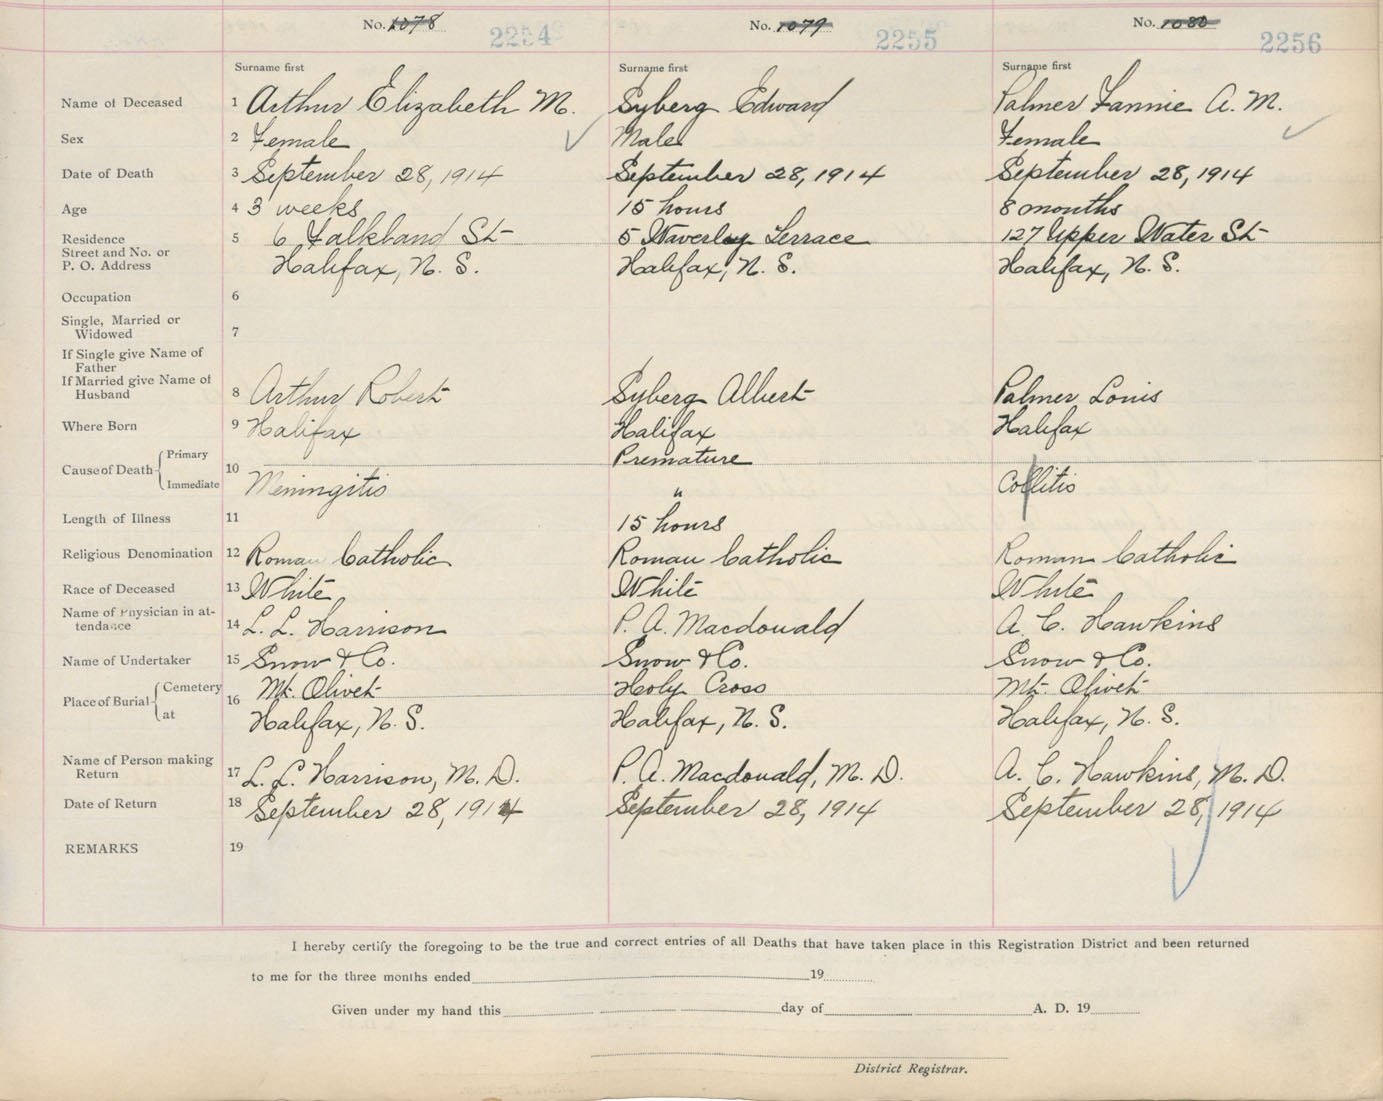 No. 1078 2254 No. 1079 2255 No. 1080 2256
Surname first Surname first Surname first
Name of Deceased 1 Arthur Elizabeth M. Syberg Edward Palmer Fannie A. M.
Sex 2 Female Male Female
Date of Death 3 September 28, 1914 September 28, 1914 September 28, 1914
Age 4 3 weeks 15 hours 8 months
Residence 5 6 Falkland St 5 Waverley Terrace 127 Upper Water St
Street and No. or
P. O. Address Halifax, N. S. Halifax, N. S. Halifax, N. S.
Occupation 6
Single, Married or
Widowed 7
If Single give Name of
Father
If Married give Name of
Husband 8 Arthur Robert Syberg Albert Palmer Louis
Where Born 9 Halifax Halifax Halifax
Cause of Death Primary 10 Premature
Immediate Meningitis " Collitis
Length of Illness 11 15 hours
Religious Denomination 12 Roman Catholic Roman Catholic Roman Catholic
Race of Deceased 13 White White White
Name of Physician in at-
tendance 14 L. L. Harrison P. A. Macdonald A. C. Hawkins
Name of Undertaker 15 Snow & Co. Snow & Co. Snow & Co.
Place of Burial Cemetery 16 Mt. Olivet Holy Cross Mt. Olivet
at Halifax, N. S. Halifax, N. S. Halifax, N. S.
Name of Person making
Return 17 L. L. Harrison, M. D. P. A. Macdonald, M. D. A. C. Hawkins, M. D.
Date of Return 18 September 28, 1914 September 28, 1914 September 28, 1914
REMARKS 19
I hereby certify the foregoing to be the true and correct entries of all Deaths that have taken place in this Registration District and been returned
to me for the three months ended 19
Given under my hand this day of A. D. 19
District Registrar.